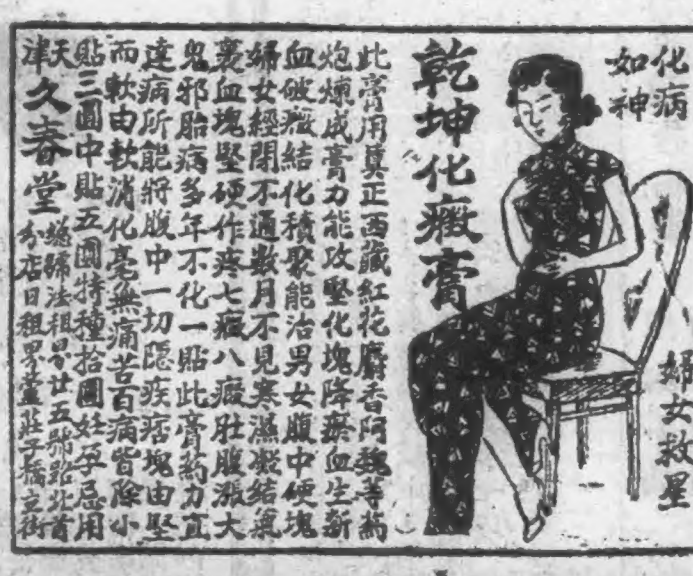 化病
如神
婦女救星
乾坤化癥膏
此膏用真正西藏紅花麝香阿魏等药
炮煉成膏力能攻堅化塊降瘀血生新
血破癥結化積聚能治男女腹中硬塊
婦女經閉不通數月不見寒濕凝結氣
裹血塊堅硬作疼七癥八瘕肚腹漲大
鬼邪胎病多年不化一貼此膏药力直
達病所能將腹中一切隱疾痞塊由堅
而軟由軟消化毫無痛苦百病皆除小
貼三圓中貼五圓特種拾圓妊孕忌用
天津
久春堂
總號法租界廿五號路北首
分店日租界莊子橋街